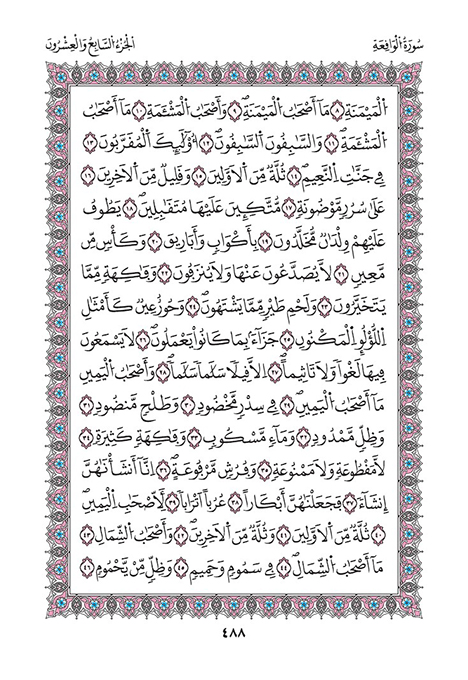 سُورَةُ الْوَاقِعَةِ
الْجُزْءُ السَّابِعُ وَالْعِشْرُونَ
اَ۬لْمَيْمَنَةِ ٨ مَآ أَصْحَٰبُ اُ۬لْمَيْمَنَةِ ٩ وَأَصْحَٰبُ اُ۬لْمَشْـَٔمَةِ ١٠ مَآ أَصْحَٰبُ
اُ۬لْمَشْـَٔمَةِ ١١ وَالسَّٰبِقُونَ اَ۬لسَّٰبِقُونَ ١٢ أُوْلَٰٓئِكَ اَ۬لْمُقَرَّبُونَ ١٣
فِے جَنَّٰتِ اِ۬لنَّعِيمِ ١٤ ثُلَّةٞ مِّنَ اَ۬لَاوَّلِينَ ١٥ وَقَلِيلٞ مِّنَ اَ۬لَاخِرِينَ ١٦
عَلَىٰ سُرُرٖ مَّوْضُونَةٖ ١٧ مُّتَّكِـِٕينَ عَلَيْهَا مُتَقَٰبِلِينَ ١٨ يَطُوفُ
عَلَيْهِمْ وِلْدَٰنٞ مُّخَلَّدُونَ ١٩ بِأَكْوَابٖ وَأَبَارِيقَ ٢٠ وَكَأْسٖ مِّن
مَّعِينٖ ٢١ لَّا يُصَدَّعُونَ عَنْهَا وَلَا يُنزَفُونَ ٢٢ وَفَٰكِهَةٖ مِّمَّا
يَتَخَيَّرُونَ ٢٣ وَلَحْمِ طَيْرٖ مِّمَّا يَشْتَهُونَ ٢٤ وَحُورٌ عِينٞ كَأَمْثَٰلِ
اِ۬للُّؤْلُؤِ اِ۬لْمَكْنُونِ ٢٥ جَزَآءَۢ بِمَا كَانُواْ يَعْمَلُونَ ٢٦ لَا يَسْمَعُونَ
فِيهَا لَغْواٗ وَلَا تَاثِيماً ٢٧ اِلَّا قِيلاٗ سَلَٰماٗ سَلَٰماٗ ٢٨ وَأَصْحَٰبُ اُ۬لْيَمِينِ
مَآ أَصْحَٰبُ اُ۬لْيَمِينِ ٢٩ فِے سِدْرٖ مَّخْضُودٖ ٣٠ وَطَلْحٖ مَّنضُودٖ ٣١
وَظِلّٖ مَّمْدُودٖ ٣٢ وَمَآءٖ مَّسْكُوبٖ ٣٣ وَفَٰكِهَةٖ كَثِيرَةٖ ٣٤
لَّا مَقْطُوعَةٖ وَلَا مَمْنُوعَةٖ ٣٥ وَفُرُشٖ مَّرْفُوعَةٍ ٣٦ اِنَّآ أَنشَأْنَٰهُنَّ
إِنشَآءٗ ٣٧ فَجَعَلْنَٰهُنَّ أَبْكَاراً ٣٨ عُرُباً اَتْرَاباٗ ٣٩ لِّأَصْحَٰبِ اِ۬لْيَمِينِ
٤٠ ثُلَّةٞ مِّنَ اَ۬لَاوَّلِينَ ٤١ وَثُلَّةٞ مِّنَ اَ۬لَاخِرِينَ ٤٢ وَأَصْحَٰبُ اُ۬لشِّمَالِ ٤٣
مَآ أَصْحَٰبُ اُ۬لشِّمَالِ ٤٤ فِے سَمُومٖ وَحَمِيمٖ ٤٥ وَظِلّٖ مِّنْ يَّحْمُومٖ ٤٦
٤٨٨